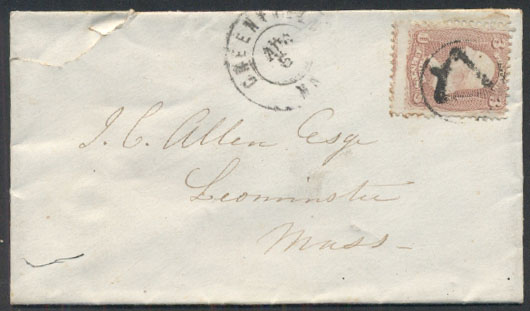 GREENFIELD
APR
6
3
3
J. C. Allen Esqr
Leominster
Mass